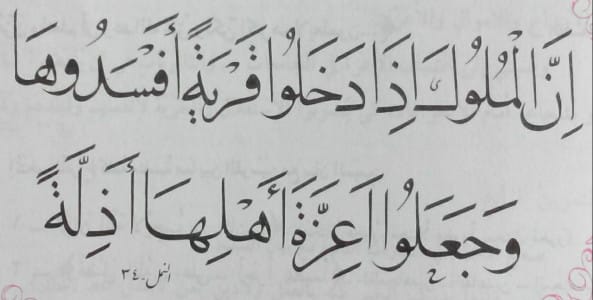 اِنَّ الْمُلُوكَ اِذَا دَخَلُوا قَرْيَةً أَفْسَدُوهَا
وَجَعَلُوا اَعِزَّةَ أَهْلِهَا أَذِلَّةً
النمل-٣٤